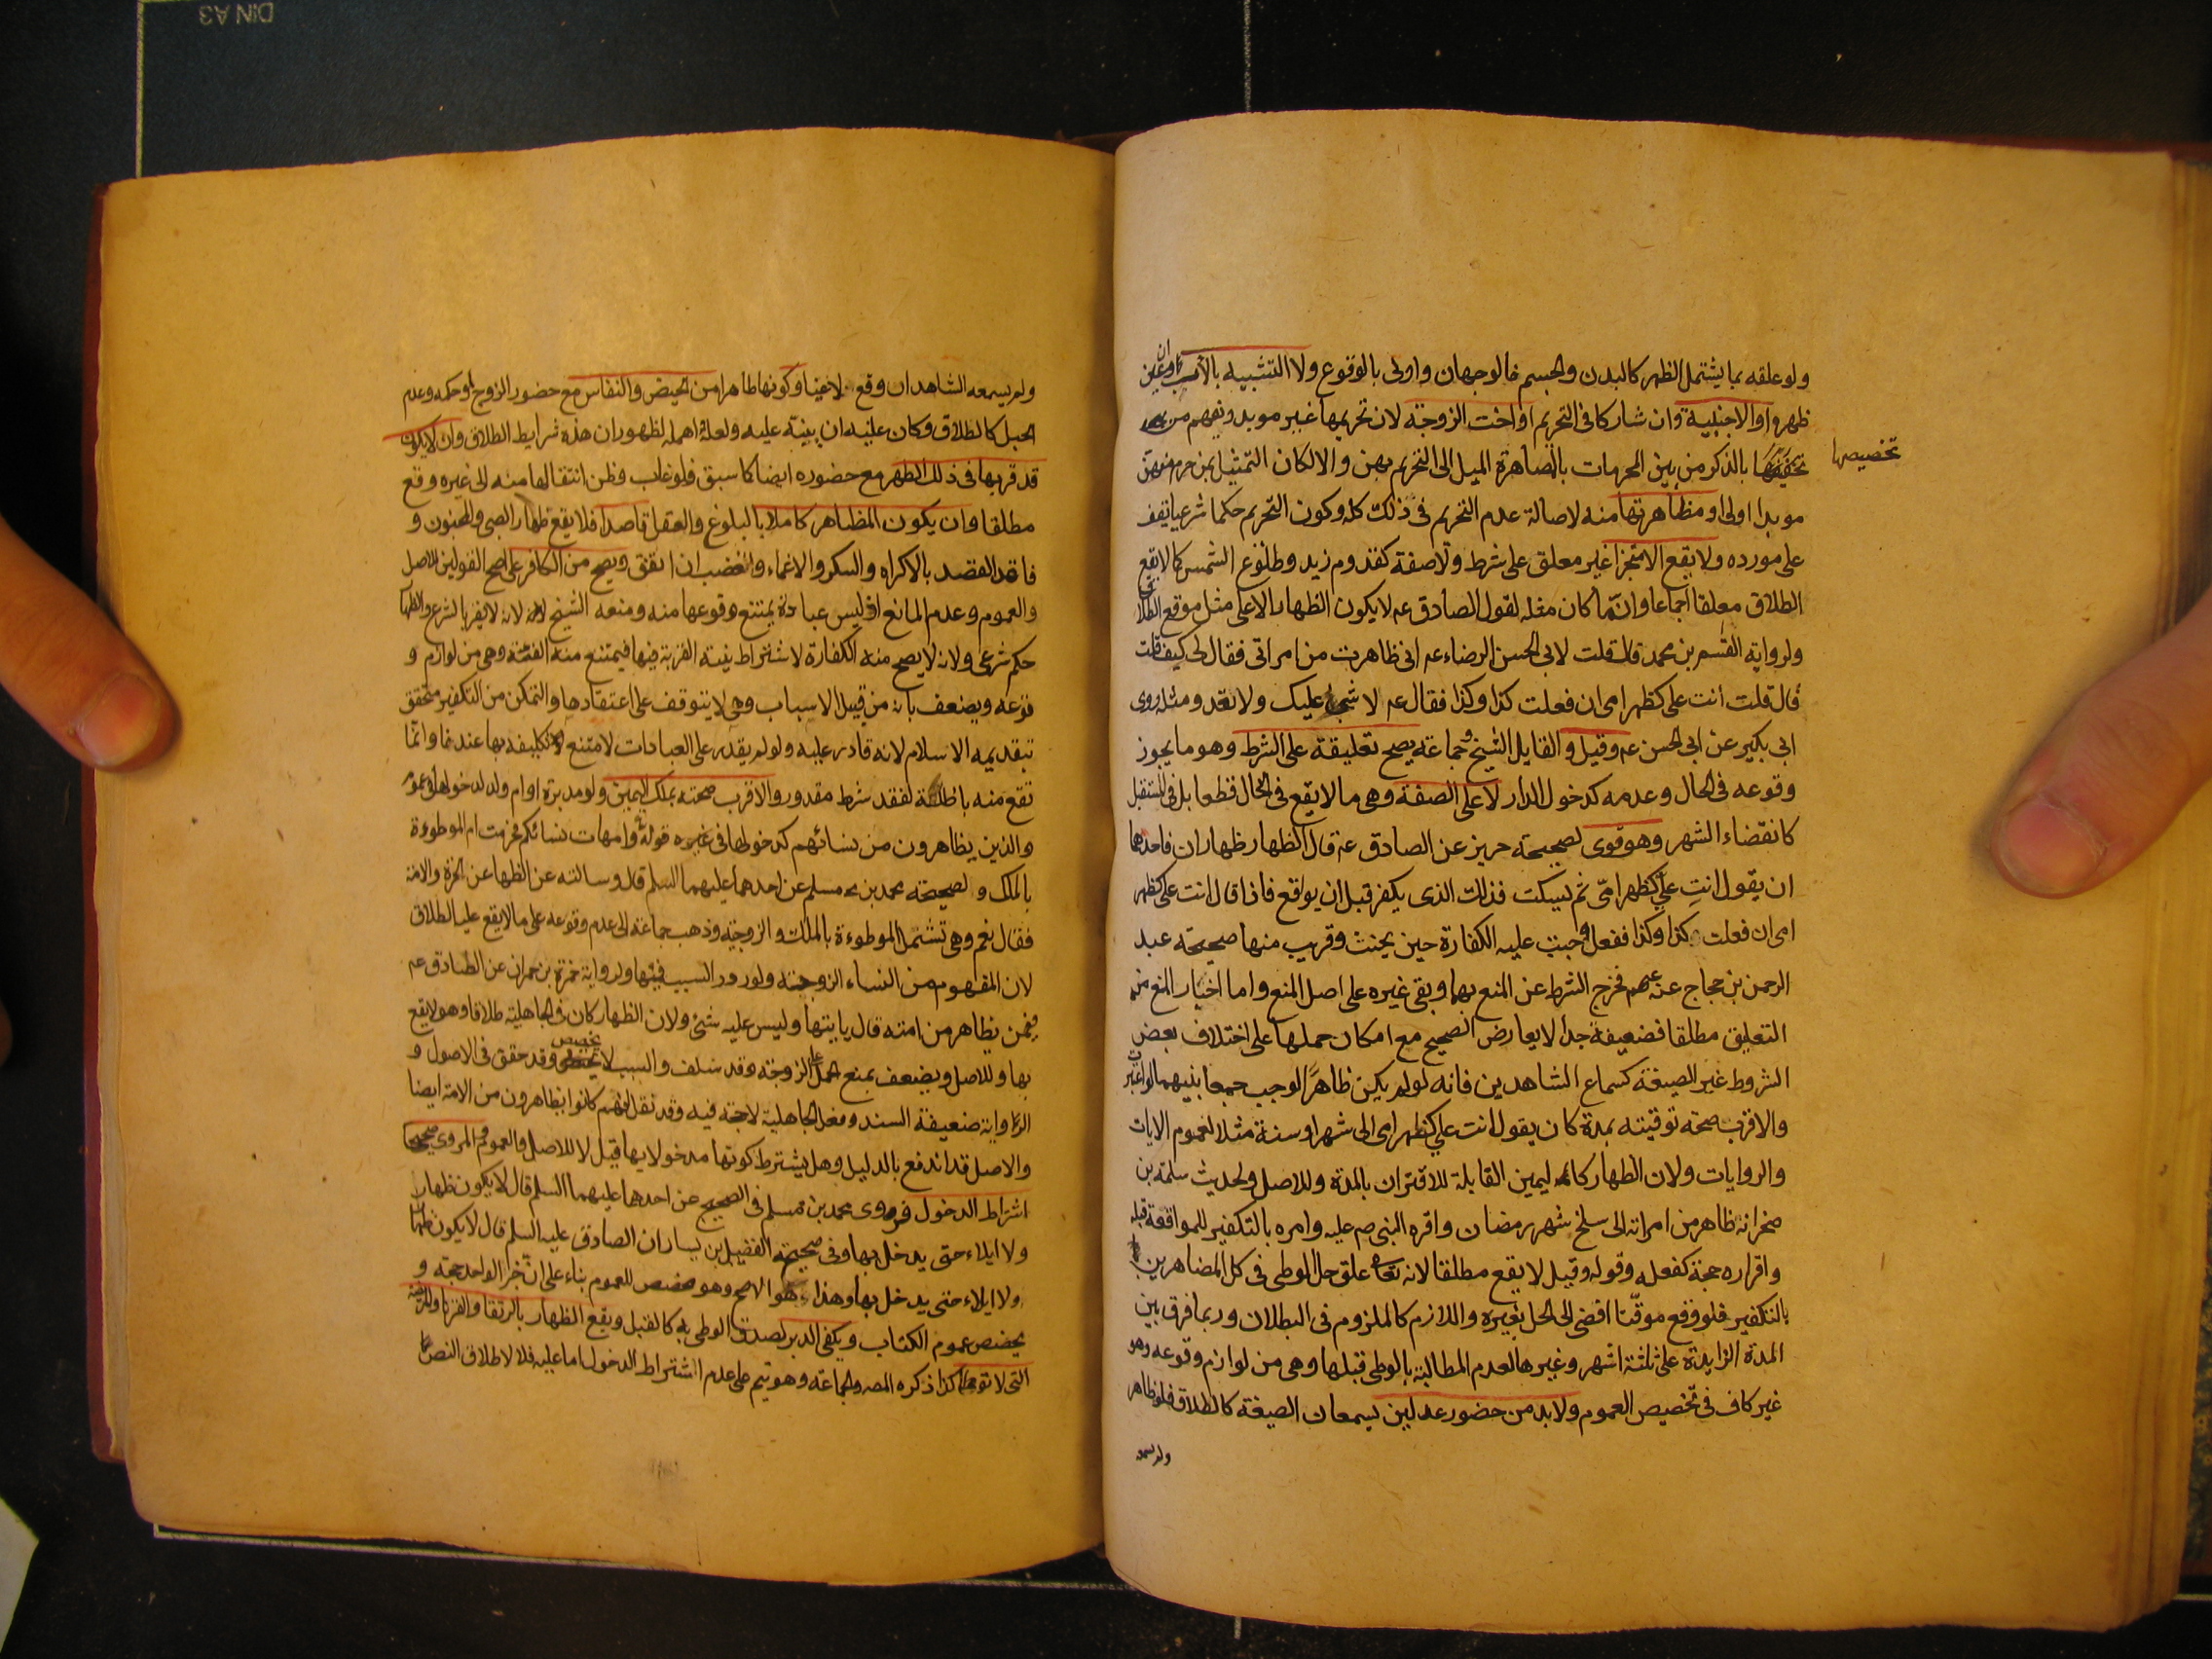 ولو علقه بما يشتمل الظهر كالبدن والجسم فالوجهان واولى بالوقوع ولا التشبيه بالأب او عين
ان
ظهره او الاجنبية وان شاركا فى التحريم او اخت الزوجة لان تحريمها غير موبد ويفهم من
بالذكر من بين المحرمات بالمصاهرة الميل الى التحريم بهن والا لكان التمثيل بمن حرم منهن
تخصيصها
موبدا اولى او مظاهرتها منه لاصالة عدم التحريم فى ذلك كله وكون التحريم حكما شرعيا يقف
على مورده ولا يقع الا منجزا غير معلق على شرط ولا صفة كقدوم زيد وطلوع الشمس كما لا يقع
الطلاق معلقا اجماعا وانما كان مثله لقول الصادق عم لا يكون الظهار الا على مثل موقع الطلاق
ولرواية القسم بن محمد قال قلت لابى الحسن الرضاء عم انى ظاهرت من امراتى فقال لى كيف قلت
قال قلت انت على كظهر امى ان فعلت كذا وكذا فقال عم لا شئ عليك ولا تعد ومثله روى
ابى بكير عن ابى الحسن عم وقيل والقايل الشيخ وجماعة يصح تعليقه على الشرط وهو ما يجوز
وقوعه فى الحال وعدمه كدخول الدار لا على الصفة وهى ما لا يقع فى الحال قطعا بل فى المستقبل
كانقضاء الشهر وهو قوى لصحيحة حريز عن الصادق عم قال الظهار ظهاران فاحدهما
ان يقول انت علي كظهر امى ثم يسكت فذلك الذى يكفر قبل ان يواقع فاذا قال انت على كظهر
امى ان فعلت كذا وكذا ففعل وجبت عليه الكفارة حين يحنث وقريب منها صحيحة عبد
الرحمن بن حجاج عنه عم فخرج الشرط عن المنع بهما وبقى غيره على اصل المنع واما اخبار المنع من
التعليق مطلقا فضعيفة جدا لا يعارض الصحيح مع امكان حملها على اختلاف بعض
الشروط غير الصيغة كسماع الشاهدين فانه لو لم يكن ظاهرا لوجب جمعا بينهما لو اعتبرت
والاقرب صحة توقيته بمدة كان يقول انت علي كظهر امى الى شهر او سنة مثلا لعموم الايات
والروايات ولان الظهار كاليمين القابلة للاقتران بالمدة وللاصل ولحديث سلمة بن
صخر انه ظاهر من امراته الى سلخ شهر رمضان واقره النبى صم عليه وامره بالتكفير للمواقعة قبله
واقراره حجة كفعله وقوله وقيل لا يقع مطلقا لانه تعا علق حل الوطى فى كل المضاهرين
بالتكفير فلو وقع موقتا افضى الى الحل بغيره واللازم كالملزوم فى البطلان وربما فرق بين
المدة الزايدة على ثلثة اشهر وغيرها لعدم المطالبة بالوطى قبلها وهى من لوازم وقوعه وهو
غير كاف فى تخصيص العموم ولا بد من حضور عدلين يسمعان الصيغة كالطلاق فلو ظاهر
ولم يسمعه
ولم يسمعه الشاهدان وقع لاغيا وكونها طاهرا من الحيض والنفاس مع حضور الزوج او حكمه وعدم
الحبل كالطلاق وكان عليه ان ينبه عليه ولعله اهمله لظهور ان هذه شرايط الطلاق وان لا يكون
قد قربها فى ذلك الطهر مع حضوره ايضا كما سبق فلو غاب وظن انتقالها منه الى غيره وقع
مطلقا وان يكون المظاهر كاملا بالبلوغ والعقل قاصدا فلا يقع ظهار الصبى والمجنون و
فاقد القصد بالاكراه والسكر والاغماء والغضب ان اتفق ويصح من الكافر على اصح القولين للاصل
والعموم وعدم المانع اذ ليس عبادة يمتنع وقوعها منه ومنعه الشيخ لانه لا يقر بالشرع والظهار
حكم شرعى ولانه لا يصح منه الكفارة لاشتراط نية القربة فيها فيمتنع منه الفئة وهى من لوازم و
قوعه ويضعف بانه من قبيل الاسباب وهى لا يتوقف على اعتقادها والتمكن من التكفير متحقق
بتقديمه الاسلام لانه قادر عليه ولو لم يقدر على العبادات لامتنع تكليفه بها عندنا وانما
تقع منه باطلة لفقد شرط مقدور والاقرب صحته بملك اليمين ولو مدبرة او ام ولد لدخولها فى عموم
والذين يظاهرون من نسائهم كدخولها فى غيره قوله تع وامهات نسائكم فحرمت ام الموطوءة
بالملك و لصحيحة محمد بن مسلم عن احدهما عليهما السلم قال وسالته عن الظهار عن الحرة والامة
فقال نعم وهى تشتمل الموطوءة بالملك والزوجية وذهب جماعة الى عدم وقوعه على ما لا يقع عليها الطلاق
لان المفهوم من النساء الزوجة ولورود السبب فيها ولرواية حمزة بن حمران عن الصادق عم
فيمن يظاهر من امته قال ياتيها وليس عليه شئ ولان الظهار كان فى الجاهلية طلاقا وهو لا يقع
بها وللاصل ويضعف بمنع الحمل على الزوجة وقد سلف والسبب لا يخصص وقد حقق فى الاصول و
الرواية ضعيفة السند وفعل الجاهلية لا حجة فيه وقد نقل انهم كانوا يظاهرون من الامة ايضا
والاصل قد اندفع بالدليل وهل يشترط كونها مدخولا بها قيل لا للاصل والعموم والمروى صحيحا
اشتراط الدخول فروى محمد بن مسلم فى الصحيح عن احدهما عليهما السلم قال لا يكون ظهار
ولا ايلاء حتى يدخل بها وفى صحيحة الفضيل بن يسار ان الصادق عليه السلم قال لا يكون ظهار
ولا ايلاء حتى يدخل بها وهذا هو الاصح وهو مخصص للعموم بناء على ان خبر الواحد حجة و
يخصص عموم الكتاب ويكفى الدبر لصدق الوطى به كالقبل ويقع الظهار بالرتقا والقرنا والمريضة
التى لا توطا كذا ذكره المصه والجماعة وهو يتم على عدم اشتراط الدخول اما عليه فلا لاطلاق النص